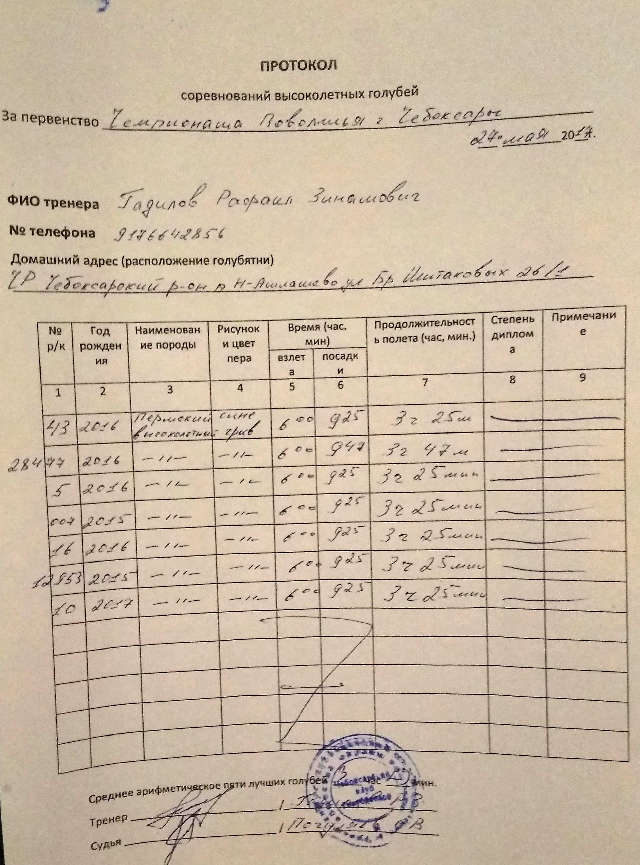 ПРОТОКОЛ
соревнований высоколетных голубей
За первенство Чемпионата Поволжья г Чебоксары
27 мая 2017г.
ФИО тренера Гадилов Рафаил Зинатович
№ телефона 9176642856
Домашний адрес (расположение голубятни)
ЧР Чебоксарский р-он ул Бр 26/1
№ р/к Год рождения Наименование породы Рисунок и цвет пера Время (час, мин) взлета посадки Продолжительность полета (час, мин.) Степень диплома Примечание
1 2 3 4 5 6 7 8 9
43 2016 Пермский высоколетный сине грив 6 00 9 25 3 ч 25 м
28477 2016 —"— —"— 6 00 9 47 3 ч 47 м
5 2016 —"— —"— 6 00 9 25 3 ч 25 мин
007 2015 —"— —"— 6 00 9 25 3 ч 25 мин
16 2016 —"— —"— 6 00 9 25 3 ч 25 мин
12853 2015 —"— —"— 6 00 9 25 3 ч 25 мин
10 2017 —"— —"— 6 00 9 25 3 ч 25 мин
Среднее арифметическое пяти лучших голубей 3 час мин.
Тренер
Судья